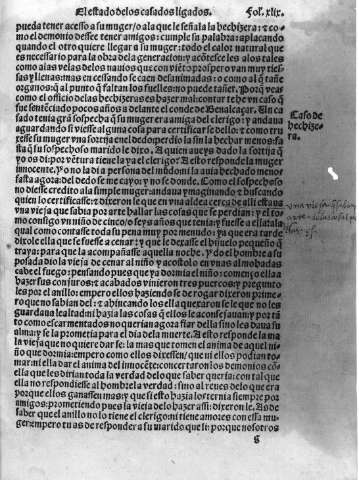 El estado de los casados ligados. Fol. xlix.
pueda tener acesso a su muger/o ala que le señala la hechizera: z co-
mo el demonio dessee tener amigos: cumple su palabra: aplacando
quando el otro quiere llegar a su muger: todo el calor natural que
es necessario para la obra dela generacion: y acõtesce les alos tales
como alas velas delos nauios que con viẽto prospero van muy ties-
sas y llenas: mas en cessando se caen desanimadas: o como al q̃ tañe
organos: q̃ al punto q̃ faltan los fuelles: no puede tañer. Y por que veas
como el officio delas hechizeras es hazer mal: contar te he vn caso q̃
fue sentẽciado pocos años a delante el conde de Benalcaçar. Un ca-
sado tenia grã sospecha q̃ su muger era amiga del clerigo: y andaua
aguardando si viesse alguna cosa para certificarse dello: z como tru
xesse su muger vna sortija enel dedo: perdio la sin la hechar menos: fa
sta q̃ su sospechoso marido le dixo. A quien aueys dado la sortija q̃
yo os di: por vẽtura tiene la ya el clerigo: A esto responde la muger
innocente. Yo no la di a persona del mũdo ni la auia hechado menor
fasta agora: del dedo se me cayo: y no se donde. Como el sospechoso
no diesse credito ala simple muger: andaua ymaginando z buscando
quien lo certificasse: z dixeron le que en vna aldea cerca de alli estaua
vna vieja que sabia por arte hallar las cosas que se perdian: y el to-
mo consigo vn niño de cinco o seys años que tenia: y fuesse a ella: ala
qual como contasse toda su pena muy por menudo: ya que era tarde
dixole ella que se fuesse a cenar: z q̃ le dexasse el hijuelo pequeño q̃
traya: para que la acompañasse aquella noche. Y do el hombre a su
posada dio la vieja de cenar al niño y acostolo en vnas almohadas
cabel fuego: pensando pues que ya dormia el niño: començo ella a
hazer sus conjuros: z acabados vinieron tres puercos: y pregunto
les por el anillo: empero ellos haziendo se de rogar dixeron prime-
ro que no sabian del: z ahincando los ella que raron se le que no les
guardaua lealtad ni hazia las cosas q̃ ellos le aconsejauan: y por tã
to como escarmentados no querian agora fiar della sino les daua su
alma: y se la prometia para el dia dela muerte. A esto responde la ma
la vieja que no quiere dar se: la mas que tomen el anima de aquel ni-
ño que dormia: empero como ellos dixessen/ que ni ellos podian to-
mar: ni ella dar el anima del innocẽte: concertaron los demonios cõ
ella que les dirian toda la verdad delo que saber queria: con tal que
ella no respondiesse al hombre la verdad: sino al reues delo que era
porque ellos ganassen mas: y que si esto hazia los ternia siempre por
amigos: prometiendo pues la vieja delo hazer assi: dixeron le. As de
saber que el anillo no lo tiene el clerigo: ni tiene amores con essa mu-
ger: impero tu as de responder a su marido que si: porque nosotros
g
Caso de
hechize-
ra.